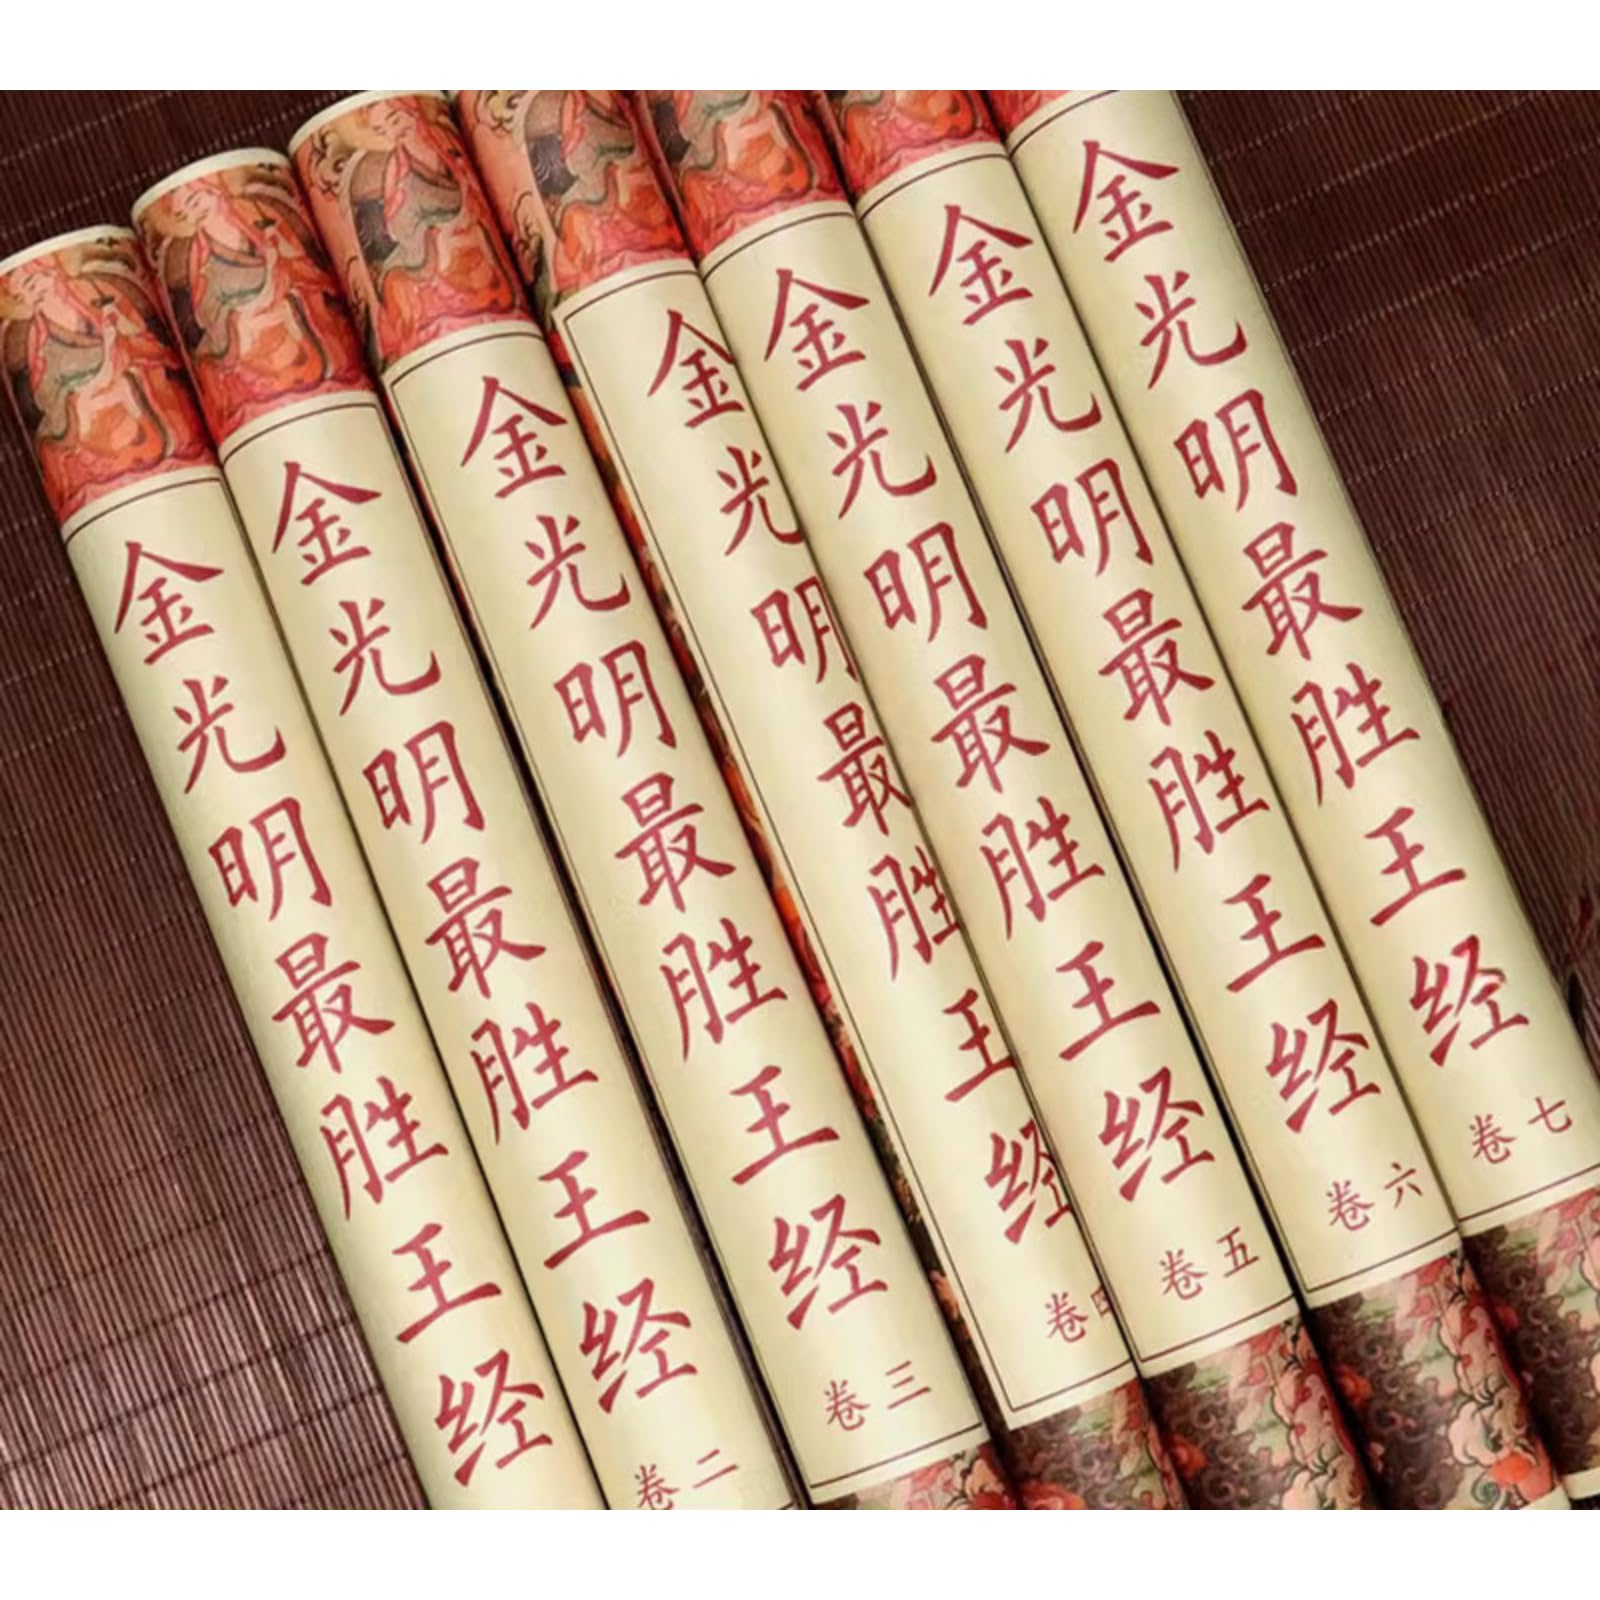 金光明最胜王经
金光明最胜王经
卷二
金光明最胜王经
卷三
金光明最胜王经
卷
金光明最胜王经
卷五
金光明最胜王经
卷六
金光明最胜王经
卷七